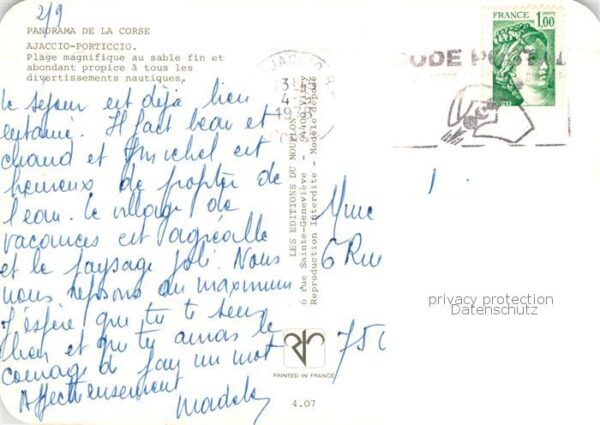 2/9
PANORAMA DE LA CORSE
AJACCIO-PORTICCIO.
Plage magnifique au sable fin et
abondant propice à tous les
divertissements nautiques.
le séjour est déjà bien
entamé. Il fait beau et
chaud et Michel est
heureux de profiter de
l'eau. Le village de
vacances est agréable
et le paysage joli. Nous
nous reposons au maximum
J'espère que tu te sens
bien et que tu auras le
courage de
un mot
Affectueusement
FRANCE
1,00
CODE POSTAL
AJACCIO
13
4
1978
LES EDITIONS DU MOUFLON
6 rue Sainte-Geneviève - 94400 Vitry
Reproduction Interdite - Modèle déposé
Mme
6 Rue
750
privacy protection
Datenschutz
PRINTED IN FRANCE
4.07